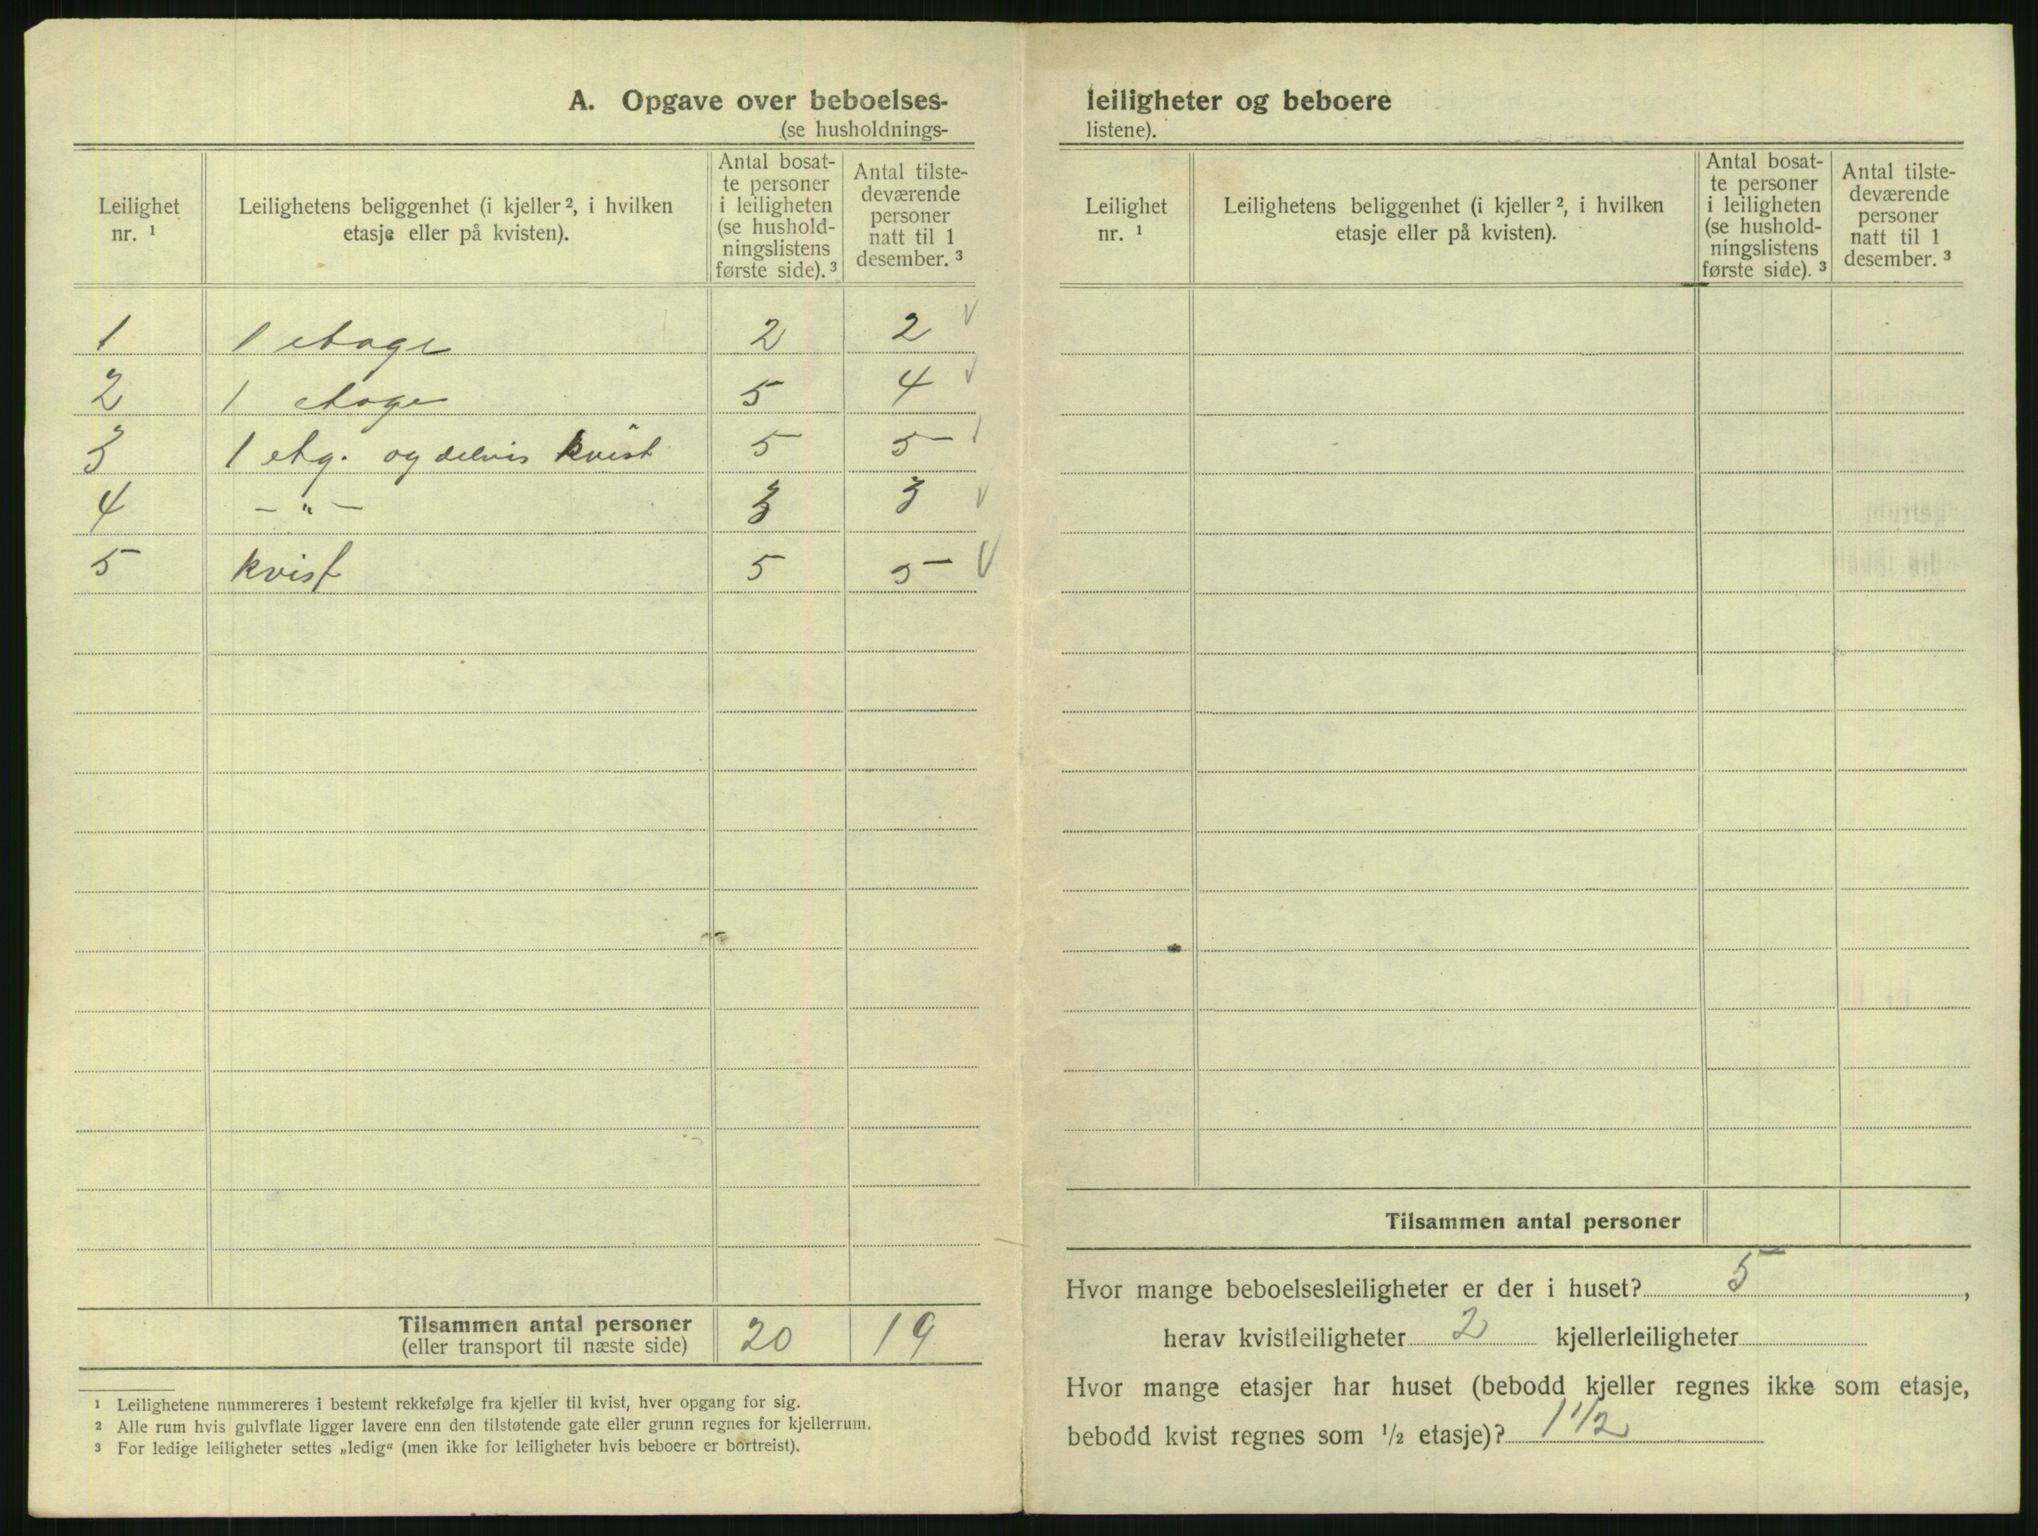 A. Opgave over beboelses-
(se husholdnings-
Leilighet nr. ¹
Leilighetens beliggenhet (i kjeller ², i hvilken etasje eller på kvisten).
Antal bosat-
te personer
i leiligheten
(se hushold-
ningslistens
første side). ³
Antal tilste-
deværende
personer
natt til 1
desember. ³
1 1 etage 2 2 √
2 1 etage 5 4 √
3 1 etg. og delvis kvist 5 5 √
4 — „ — 3 3 √
5 kvist 5 5 √
Tilsammen antal personer 20 19
(eller transport til næste side)
¹ Leilighetene nummereres i bestemt rekkefølge fra kjeller til kvist, hver opgang for sig.
² Alle rum hvis gulvflate ligger lavere enn den tilstøtende gate eller grunn regnes for kjellerrum.
³ For ledige leiligheter settes „ledig“ (men ikke for leiligheter hvis beboere er bortreist).
leiligheter og beboere
listene).
Leilighet nr. ¹
Leilighetens beliggenhet (i kjeller ², i hvilken etasje eller på kvisten).
Antal bosat-
te personer
i leiligheten
(se hushold-
ningslistens
første side). ³
Antal tilste-
deværende
personer
natt til 1
desember. ³
Tilsammen antal personer
Hvor mange beboelsesleiligheter er der i huset? 5 ,
herav kvistleiligheter 2 kjellerleiligheter
Hvor mange etasjer har huset (bebodd kjeller regnes ikke som etasje,
bebodd kvist regnes som ½ etasje)? 1 1/2